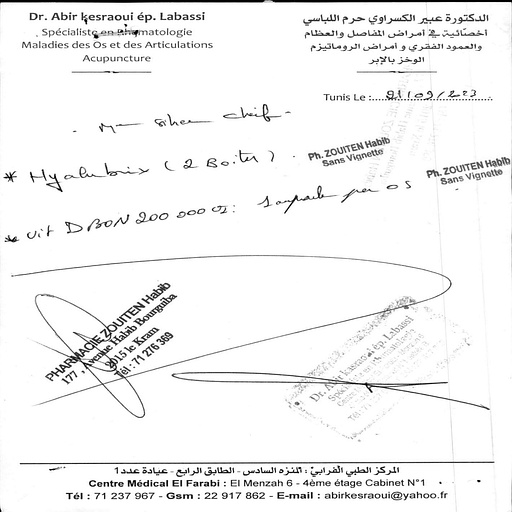 Dr. Abir kesraoui ép. Labassi
Spécialiste en Rhumatologie
Maladies des Os et des Articulations
Acupuncture
الدكتورة عبير الكسراوي حرم اللباسي
أخصائية في أمراض المفاصل والعظام
والعمود الفقري و أمراض الروماتيزم
الوخز بالإبر
Tunis Le : 21/09/223
Hyalubrix (2 Boites)
Ph. ZOUITEN Habib
Sans Vignette
Ph. ZOUITEN Habib
Sans Vignette
* Vit D BON 200 000 UI : 1 ampoule per os
PHARMACIE ZOUITEN Habib
177, Avenue Habib Bourguiba
2015 le Kram
Tél : 71 276 369
Dr. Abir kesraoui ép. Labassi
المركز الطبي الفرابي : المنزه السادس - الطابق الرابع - عيادة عدد1
Centre Médical El Farabi : El Menzah 6 - 4ème étage Cabinet N°1
Tél : 71 237 967 - Gsm : 22 917 862 - E-mail : abirkesraoui@yahoo.fr